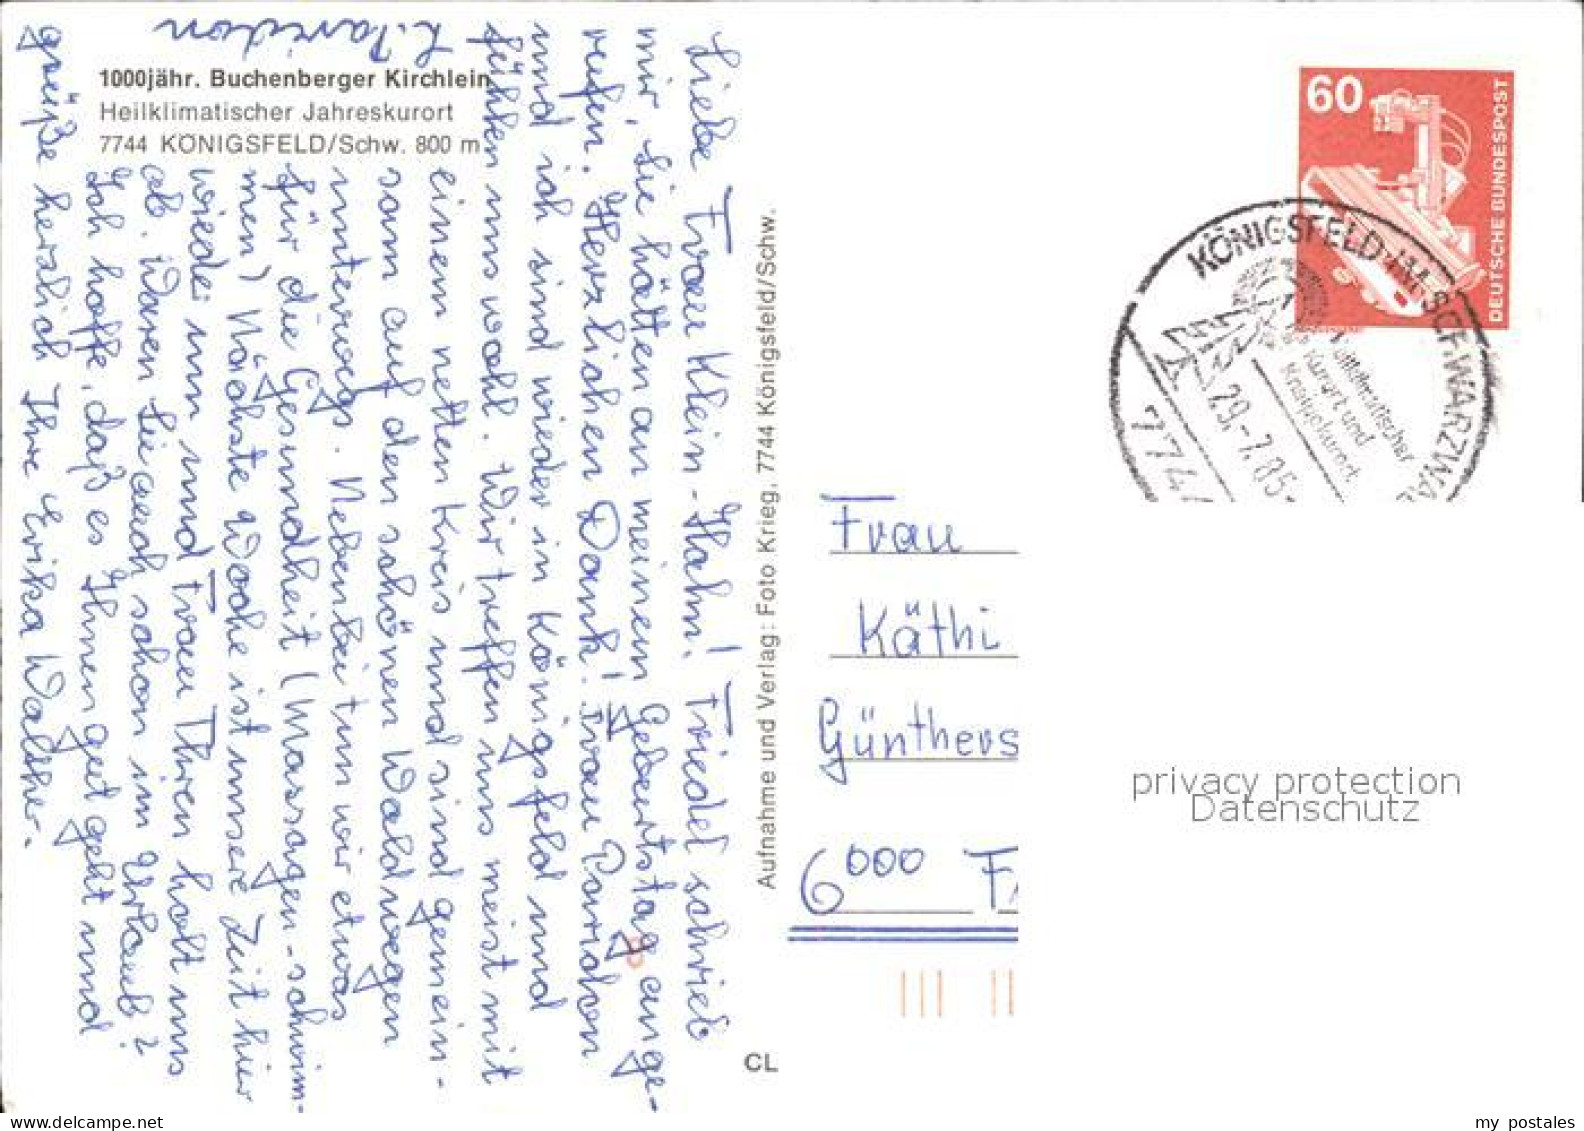 1000jähr. Buchenberger Kirchlein
Heilklimatischer Jahreskurort
7744 KÖNIGSFELD/Schw. 800 m
Liebe Frau Klein-Hahn! Friedel schrieb
mir, Sie hätten an meinem Geburtstag ange-
rufen. Herzlichen Dank! Frau Paridon
und ich sind wieder in Königsfeld und
fühlen uns wohl. Wir treffen uns meist mit
einem netten Kreis und sind gemein-
sam auf den schönen Waldwegen
unterwegs. Nebenbei tun wir etwas
für die Gesundheit (Massagen-schwim-
men) Nächste Woche ist unsere Zeit hier
wieder um und Frau Thren holt uns
ab. Waren Sie auch schon im Urlaub?
Ich hoffe, daß es Ihnen gut geht und
grüße herzlich Ihre Erika Walther.
L. Paridon
Aufnahme und Verlag: Foto Krieg, 7744 Königsfeld/Schw.
CL
60
DEUTSCHE BUNDESPOST
KÖNIGSFELD IM SCHWARZWA
Heilklimatischer
Kurort und
Kneippkurort
29.-7.85-
7744
Frau
Käthi
Günthers
6000 F
privacy protection
Datenschutz
www.delcampe.net
my_postales